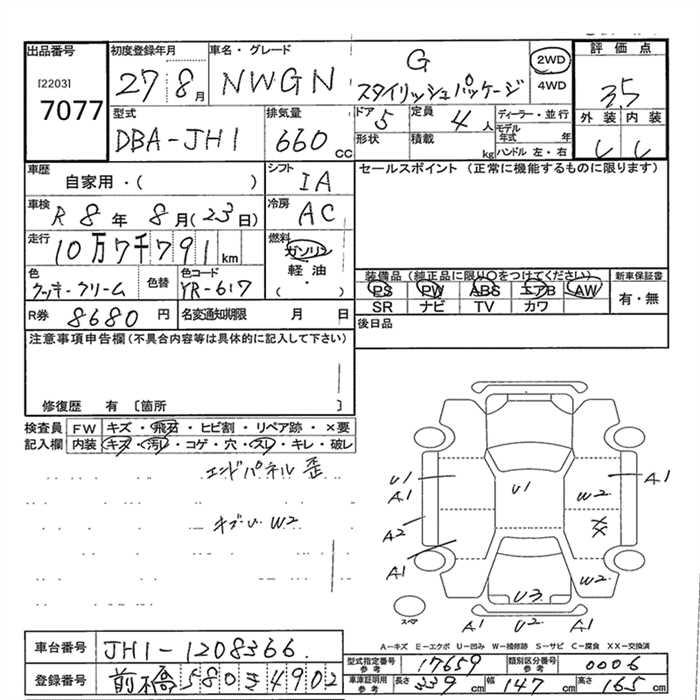 出品番号 [2203] 7077
初度登録年月 27 8月
車名・グレード NWGN G スタイリッシュパッケージ
2WD
4WD
評価点 3.5
外装 内装
型式 DBA-JH1
排気量 660 CC
ドア 5 定員 4人
形状 積載 kg
ディーラー・並行
モデル年式 年
ハンドル 左・右
車歴 自家用・( )
シフト IA
セールスポイント (正常に機能するものに限ります)
車検 R 8年 8月(23日)
冷房 AC
走行 10万7千791km
燃料 ガソリン
軽油
・
( )
色 クッキークリーム 色替 色コード YR-617
装備品 (純正品に限り○をつけてください) 新車保証書
PS PW ABS エアB AW 有・無
SR ナビ TV カワ
R券 8680円 名変通知期限 月 日
後日品
注意事項申告欄 (不具合内容等は具体的に記入して下さい)
修復歴 有 〔箇所 〕
検査員 FW キズ・飛石・ヒビ割・リペア跡・×要
記入欄 内装 キズ・汚れ・コゲ・穴・スレ・キレ・破レ
エンドパネル 歪
キズU W2
U1 A1 U1 W2 A1
A2 XX
A1 W2
U3
スペア A1 U2 A1
A-キズ E-エクボ U-凹み W-補修跡 S-サビ C-腐食 XX-交換済
車台番号 JH1-1208366
型式指定番号 参考 17659 類別区分番号 参考 0006
登録番号 前橋 580 き 4902
車庫証明用 参考 長さ 339cm 幅 147cm 高さ 165cm